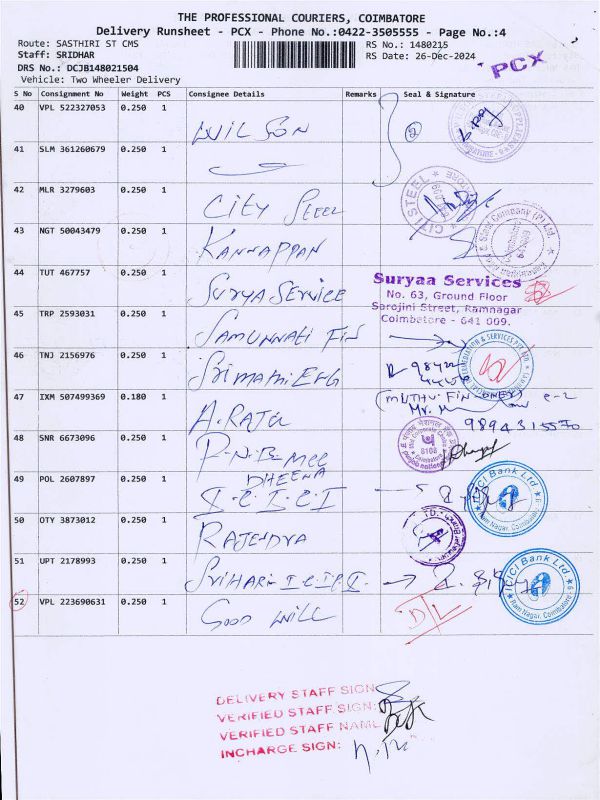 THE PROFESSIONAL COURIERS, COIMBATORE
Delivery Runsheet - PCX - Phone No.:0422-3505555 - Page No.:4
Route: SASTHIRI ST CMS
Staff: SRIDHAR
DRS No.: DCJB148021504
Vehicle: Two Wheeler Delivery
RS No.: 1480215
RS Date: 26-Dec-2024
PCX
S No Consignment No Weight PCS Consignee Details Remarks Seal & Signature
40 VPL 522327053 0.250 1 WILSON 2
41 SLM 361260679 0.250 1
42 MLR 3279603 0.250 1 CITY STEEL
CITI STEEL
43 NGT 50043479 0.250 1 KANNAPPAN
44 TUT 467757 0.250 1 SURYA SERVICE
Suryaa Services
No. 63, Ground Floor
Sarojini Street, Ramnagar
Coimbatore - 641 009.
45 TRP 2593031 0.250 1 SAMUNNATI FIN
46 TNJ 2156976 0.250 1 SRIMATHI ENG
47 IXM 507499369 0.180 1 A.RAJA
(MUTHU FIN
9894315570
48 SNR 6673096 0.250 1 P.N.B-MEE
DHEENA
8108
49 POL 2607897 0.250 1 I.C.I.C.I
ICICI Bank Ltd
Ram Nagar, Coimbatore-9
50 OTY 3873012 0.250 1 RAJENDRA
51 UPT 2178993 0.250 1 SRIHARI I.C.I.C.I.
ICICI Bank Ltd
Ram Nagar, Coimbatore-9
52 VPL 223690631 0.250 1 GOOD WILL D/L
DELIVERY STAFF SIGN
VERIFIED STAFF SIGN:
VERIFIED STAFF NAME
INCHARGE SIGN: